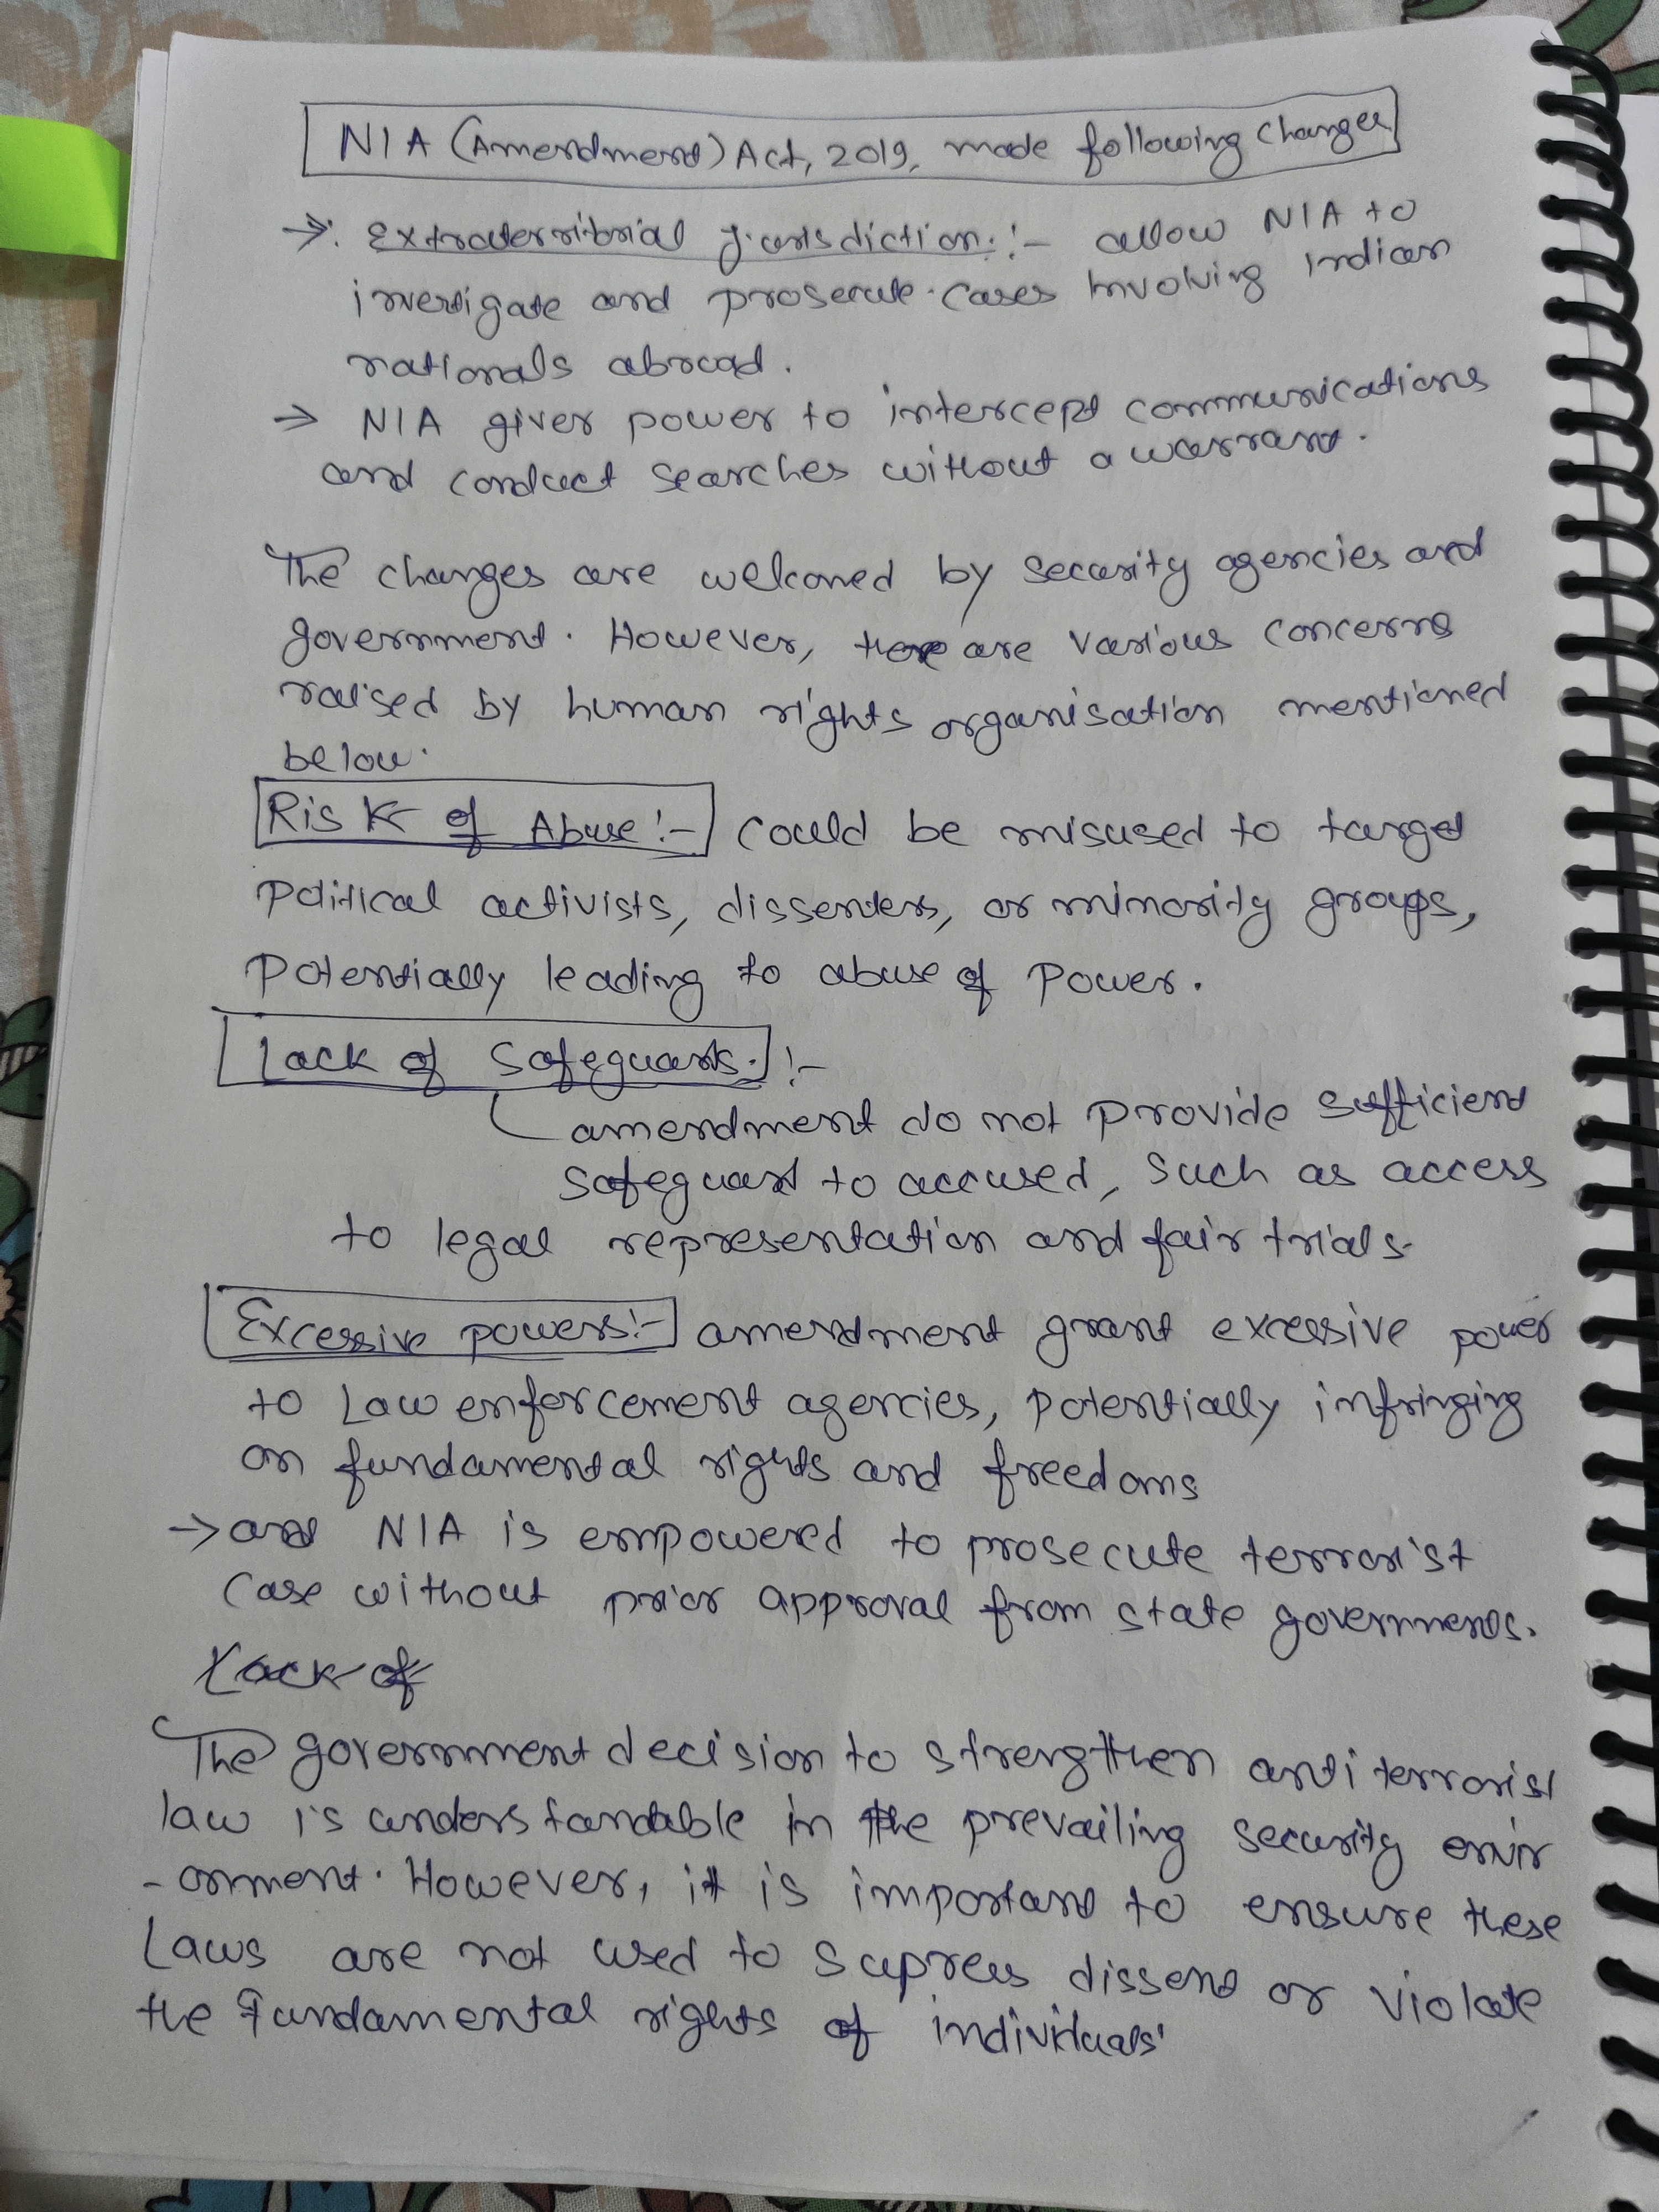 NIA (Amendment) Act, 2019, made following changes
→ Extraterritorial Jurisdiction :- allow NIA to
investigate and prosecute cases involving Indian
nationals abroad.
→ NIA given power to intercept communications
and conduct searches without a warrant.
The changes are welcomed by security agencies and
government. However, there are various concerns
raised by human rights organisation mentioned
below.
Risk of Abuse :- could be misused to target
political activists, dissenters, or minority groups,
potentially leading to abuse of power.
Lack of Safeguards. :-
amendment do not provide sufficient
safeguard to accused, such as access
to legal representation and fair trials.
Excessive powers :- amendment grant excessive power
to Law enforcement agencies, potentially infringing
on fundamental rights and freedoms
→ and NIA is empowered to prosecute terrorist
case without prior approval from state governments.
Lack of
The government decision to strengthen anti terrorist
law is understandable in the prevailing security envir
-onment. However, it is important to ensure these
Laws are not used to supress dissent or violate
the fundamental rights of individuals'